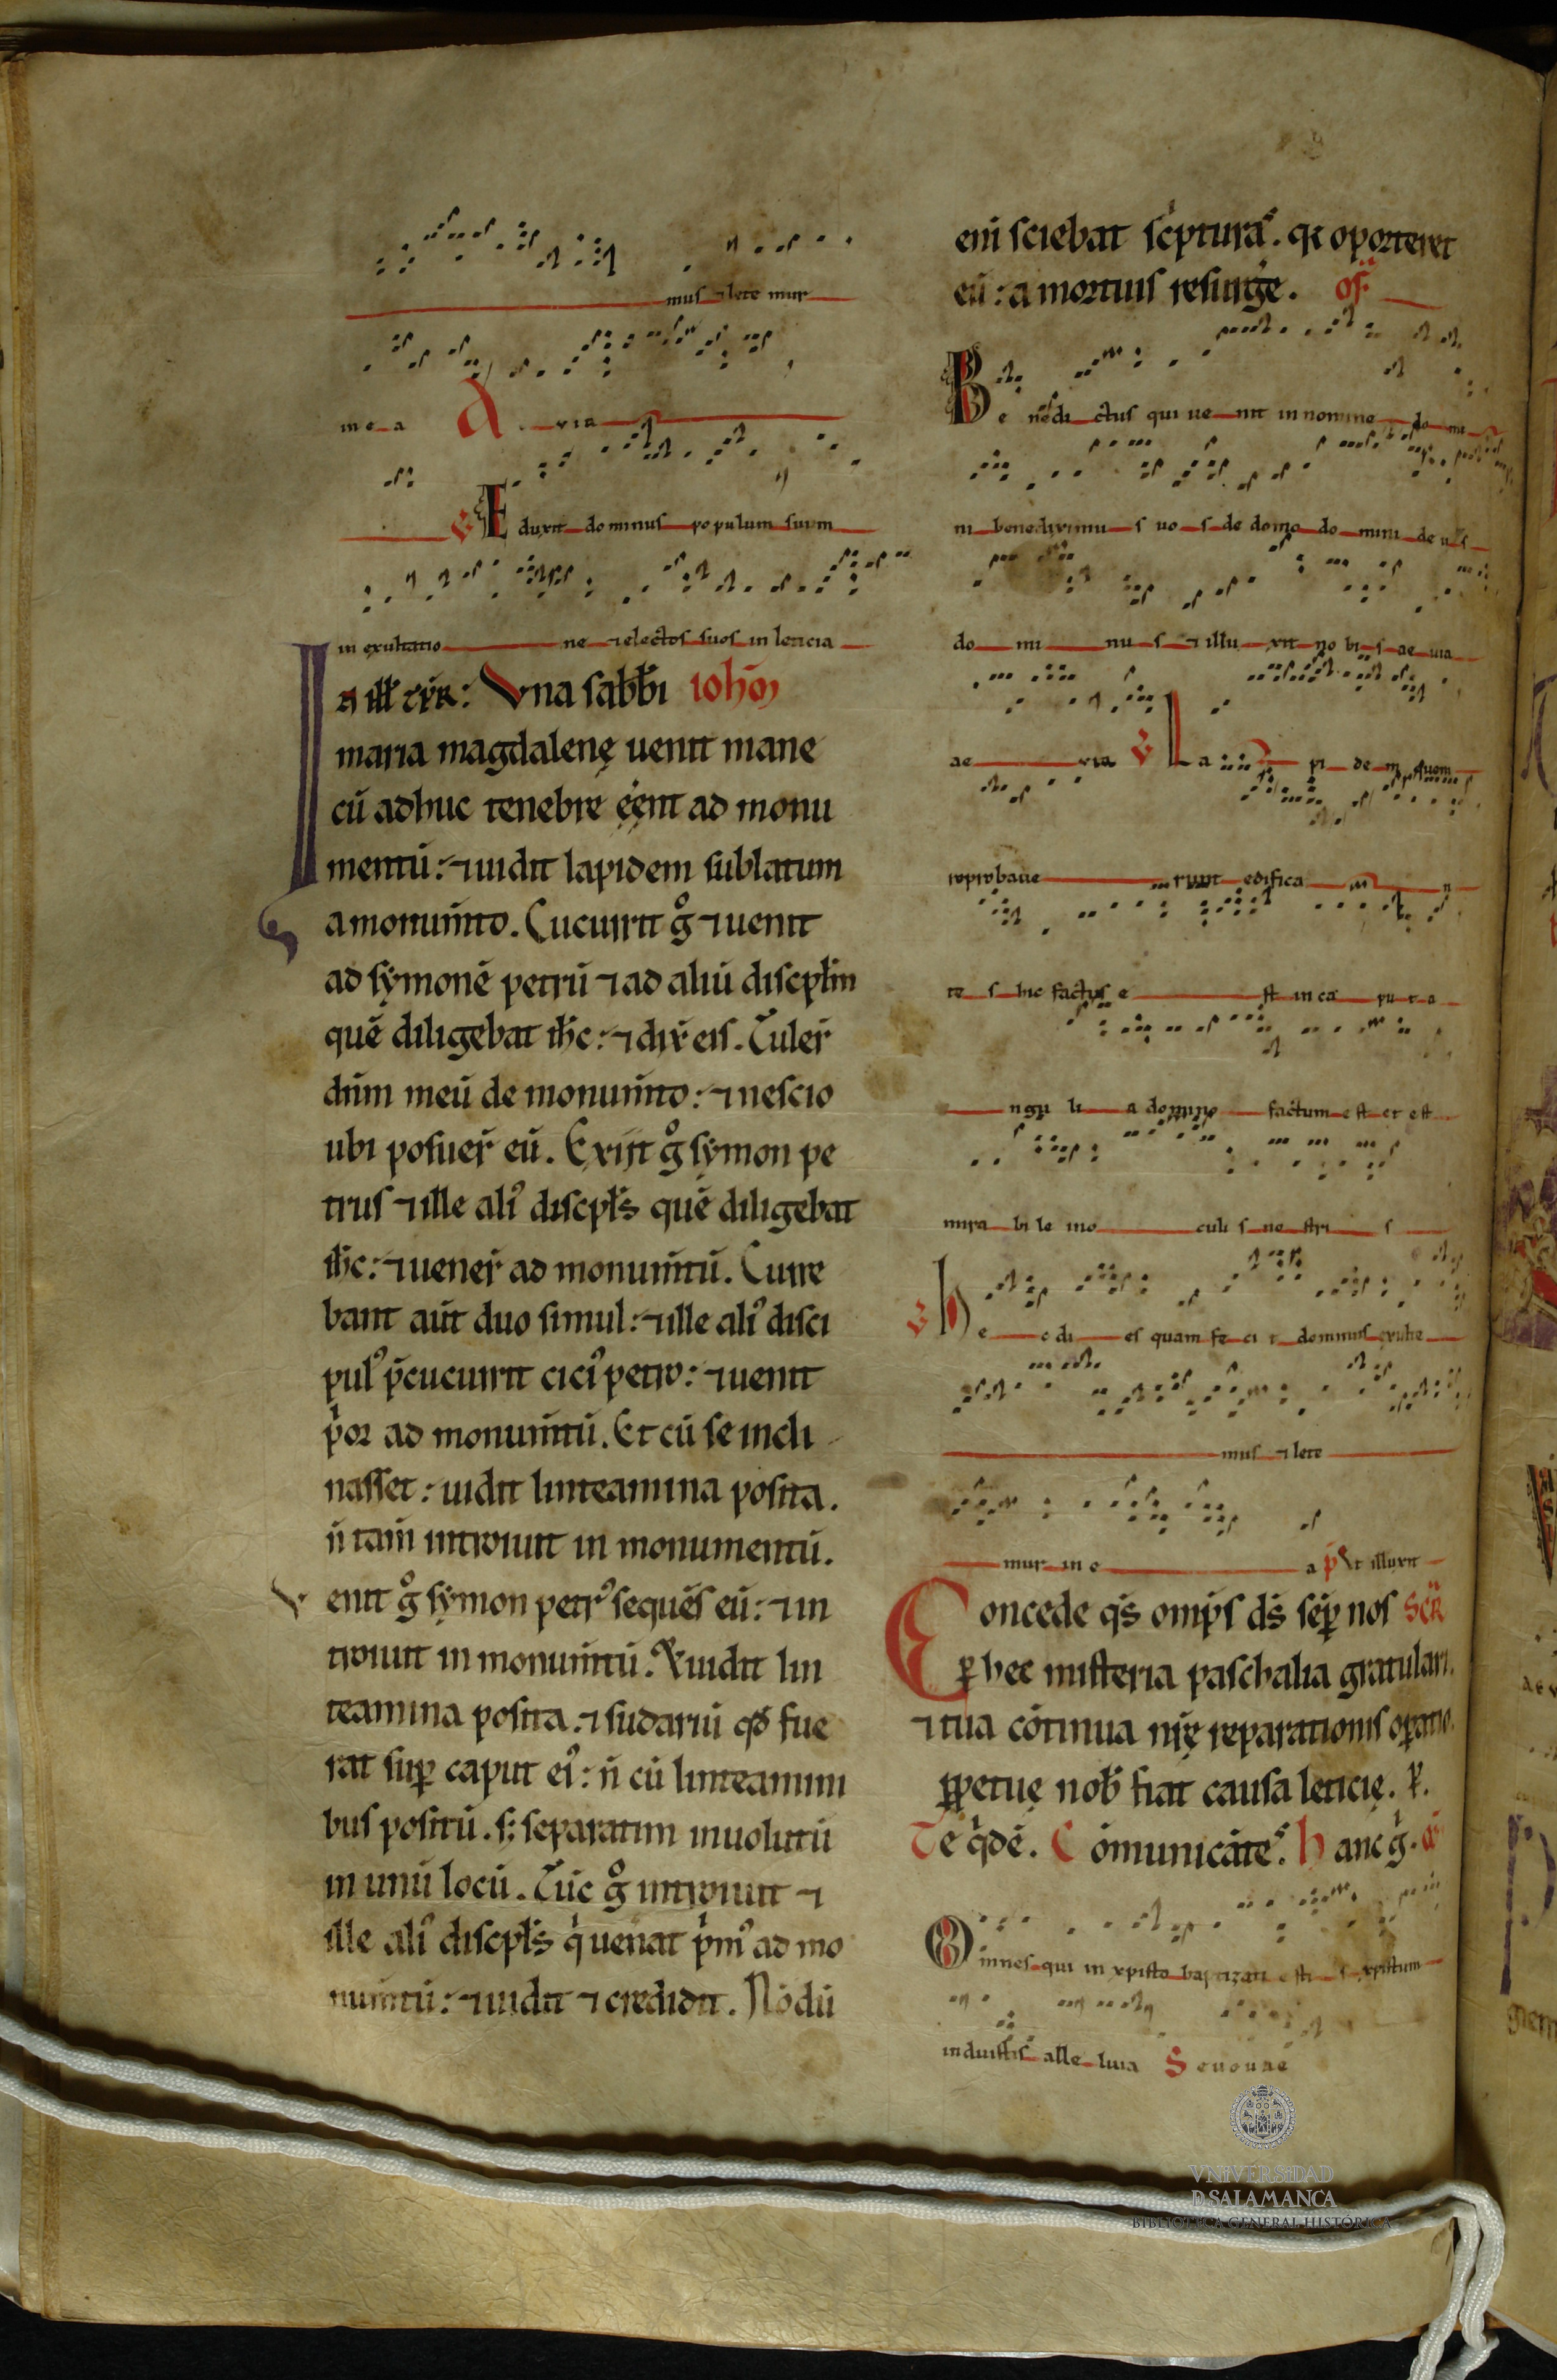 mus ⁊lete mur
in e a A via
V Eduxit dominus populum suum
in exultatio ne ⁊electos suos in leticia
Vna sabbi ioħ
maria magdalenę uenit mane
cū adhuc tenebre eēnt ad monu
mentū: ⁊uidit lapidem sublatum
a monum̄to. Cucurrit gͦ ⁊uenit
ad sẏmonē petrū ⁊ad aliū discpl̄m
quē diligebat ih̄c: ⁊dix̄ eis. Tuler̄
dn̄m meū de monum̄to: ⁊nescio
ubi posuer̄ eū. Exijt gͦ sẏmon pe
trus ⁊ille aliꝰ discpl̄s quē diligebat
ih̄c: ⁊uener̄ ad monum̄tū. Curre
bant aut̄ duo simul: ⁊ille aliꝰ disci
pulꝰ p̄cucurrit ciciꝰ petro: ⁊uenit
pͥor ad monum̄tū. Et cū se incli
nasset: uidit linteamina posita.
n̄ tam̄ introiuit in monumentū.
Venit gͦ sẏmon petrꝰ sequēs eū: ⁊in
troiuit in monum̄tū. Et uidit lin
teamina posita. ⁊sudariū qđ fue
rat suꝑ caput eiꝰ: n̄ cū linteamini
bus positū. s; separatim inuolutū
in unū locū. Tūc gͦ introiuit ⁊
ille aliꝰ discpl̄s qͥ uenat pͥmꝰ ad mo
num̄tū: ⁊uidit ⁊credidit. Nōdū
eni sciebat scͥpturas. qꝛ oporteret
eū: a mortuis resurgē. of̄
Be nedi ctus qui ue nit in nomine do mi
ni benediximu s uo s de domo do mini de us
do mi nu s ⁊illu xit no bi s ae uia
ae via V La pi de m quem
reprobaue runt edifica n
te s hic factus e st in ca pu t a
ngu li a domino factum e st et est
mira bi le in o culi s no stri s
V he c di es quam fe ci t dominus exulte
mus ⁊lete
mur in e a p̄ Vt illuxit
Concede qs̄ omp̄s ds̄ seꝑ nos Scr̄
ꝑ hec misteria paschalia gratulari.
⁊tua cōtinua nr̄ę reparationis oꝑatio.
ꝑpetuę nob̄ fiat causa leticię. P̄.
Te qͥdē. Cōmunicātes. hanc gͥ.
Omnes qui in xpisto baptizati esti s xpistum
induistis alle luia Seuouae
VNiVERSiDAD
D SALAMANCA
BIBLIOTECA GENERAL HISTÓRICA